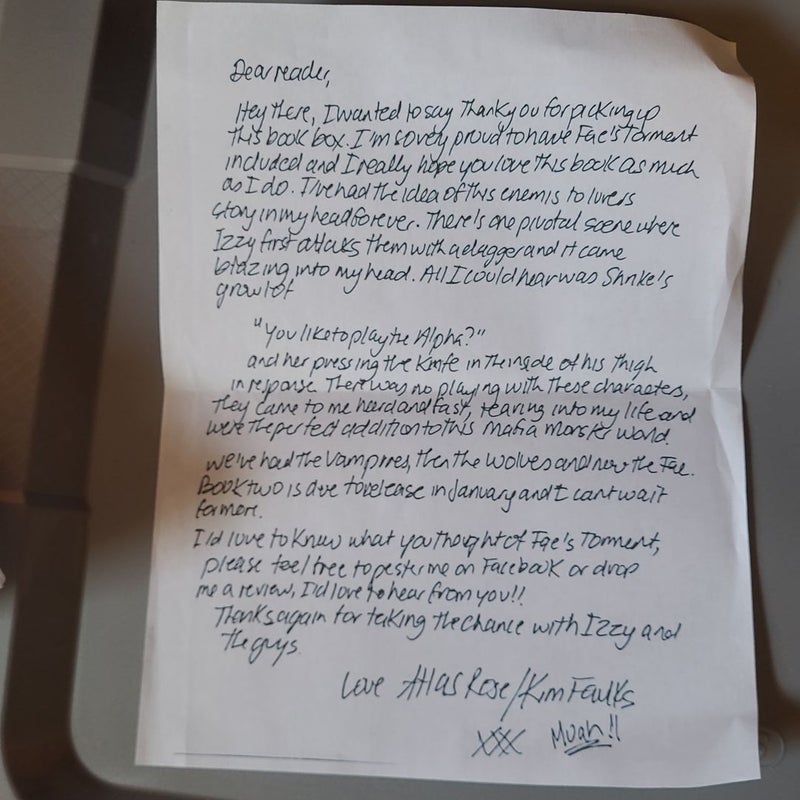 Dear reader,
Hey there, I wanted to say Thankyou for picking up
this book box. I'm so very proud to have Fae's Torment
included and I really hope you love this book as much
as I do. I've had the idea of this enemis to lovers
story in my head forever. There's one pivotal scene where
Izzy first attacks them with a dagger and it came
blazing into my head. All I could hear was Shrike's
growl of
"You like to play the Alpha?"
and her pressing the knife in the inside of his thigh
in response. There was no playing with these characters,
they came to me hard and fast, tearing into my life and
were the perfect addition to this mafia monster world.
we've had the Vampires, then the Wolves and now the Fae.
Book two is due to release in January and I cant wait
for more.
I'd love to know what you thought of Fae's Torment,
please feel free to pester me on Facebook or drop
me a review, I'd love to hear from you!!
Thanks again for taking the chance with Izzy and
the guys.
Love Atlas Rose/Kim Faulks
XXX Muah!!